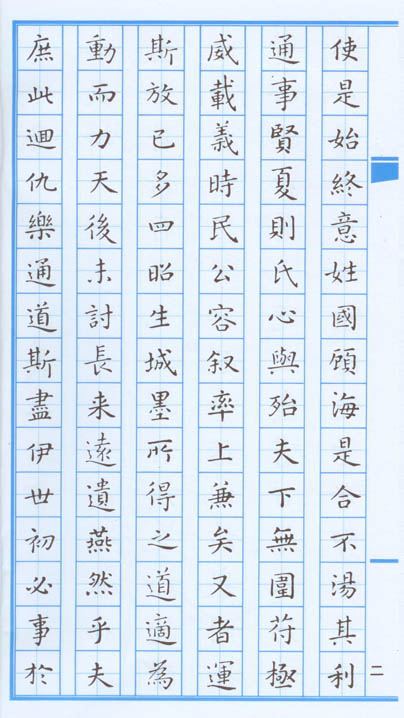 使是始終意姓國顧海是合不湯其利
通事賢夏則氏心與殆夫下無圍苻極
威載義時民公容叙率上兼矣又者運
斯放已多四昭生城墨所得之道適為
動而力天後未討長来遠遺燕然乎夫
庶此迴仇樂通道斯盡伊世初必事於
二